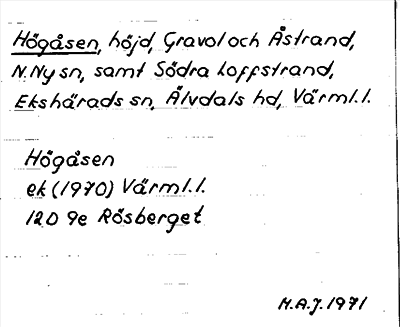 Högåsen, höjd, Gravol och Åstrand,
N.Ny sn, samt Södra Loffstrand,
Ekshärads sn, Älvdals hd, Värml.l.
Högåsen
ek (1970) Värml.l.
12D 9e Rösberget
M.A.J. 1971